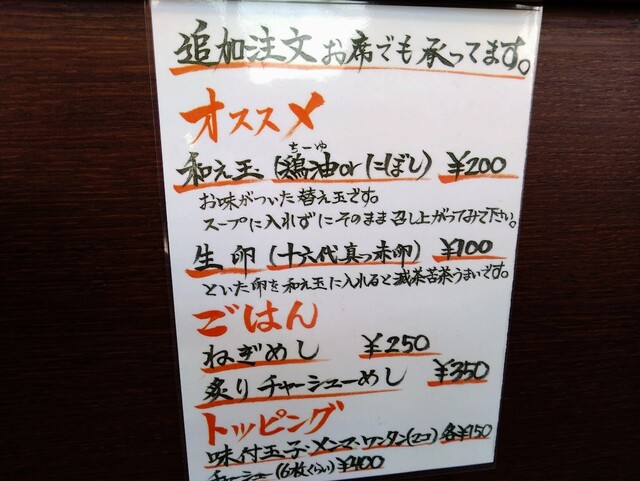 追加注文 お席でも承ってます。
オススメ
ちーゆ
和え玉 (鶏油orにぼし) ¥200
お味がついた替え玉です。
スープに入れずにそのまま召し上がってみて下さい。
生卵 (十六代真っ赤卵) ¥100
といた卵を和え玉に入れると滅茶苦茶うまいです。
ごはん
ねぎめし ¥250
炙りチャーシューめし ¥350
トッピング
味付玉子・メンマ・ワンタン(2コ) 各¥150
チャーシュー(6枚くらい) ¥400